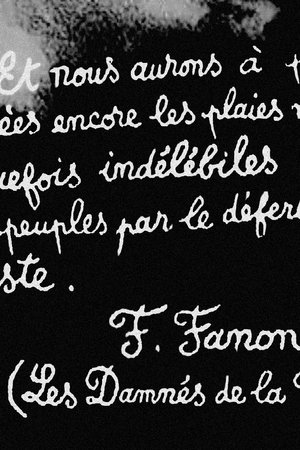 Et nous aurons à
ées encore les plaies
uefois indélébiles
peuples par le défer
ste.
F. Fanon
(Les Damnés de la